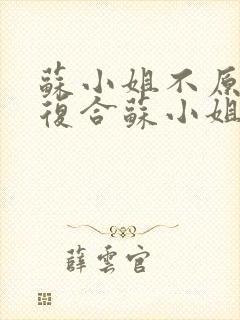 蘇小姐不原
復合蘇小姐
薛雲官